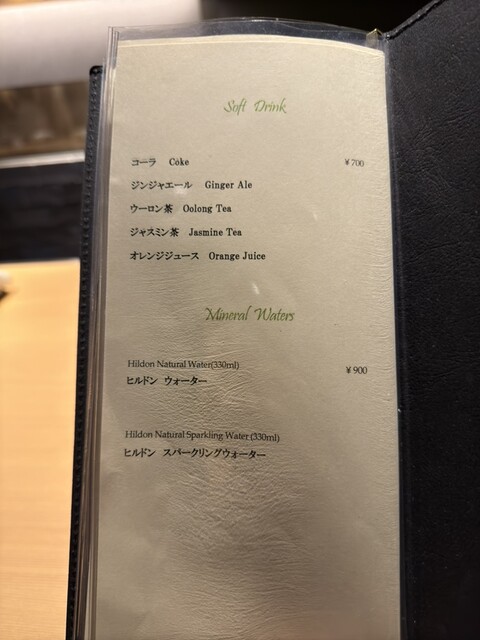 Soft Drink
コーラ Coke ¥700
ジンジャエール Ginger Ale
ウーロン茶 Oolong Tea
ジャスミン茶 Jasmine Tea
オレンジジュース Orange Juice
Mineral Waters
Hildon Natural Water(330ml) ¥900
ヒルドン ウォーター
Hildon Natural Sparkling Water (330ml)
ヒルドン スパークリングウォーター